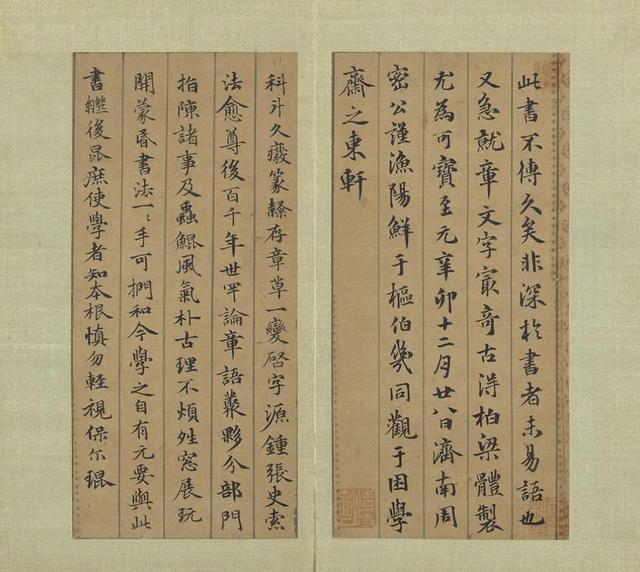 此書不傳久矣非深於書者未易語也
又急就章文字寂奇古淂柏梁體製
尤為可寶至元辛卯十二月廿八日濟南周
密公謹漁陽鮮于樞伯幾同觀于困學
齋之東軒
科斗久癈篆籀存章草一變啓字源鍾張史索
法愈尊後百千年世罕論章語䕺夥分部門
指陳諸事及蟲鯤風氣朴古理不煩姓窓展玩
開蒙昏書法一〻手可捫和今學之自有元要與此
書繼後昆庶使學者知本根慎勿輕視保尔琨